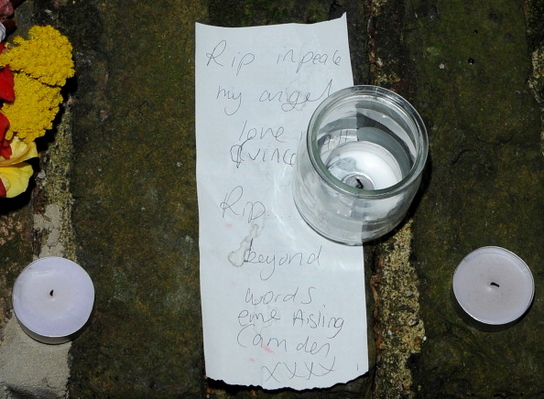 Rip inpeale
my angel
love
Rip
beyond
words
eme Aisling
Camden
XXXX